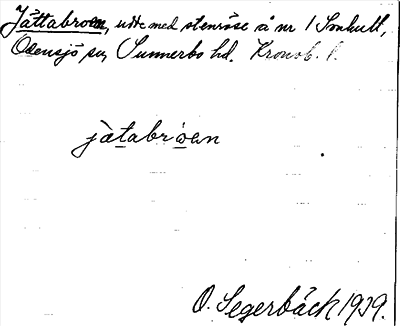 Jättabroen, udde med stenröse å nr 1 Sonhult,
Odensjö sn, Sunnerbo hd. Kronob. l.
jätabroen
O. Segerbäck 1939.